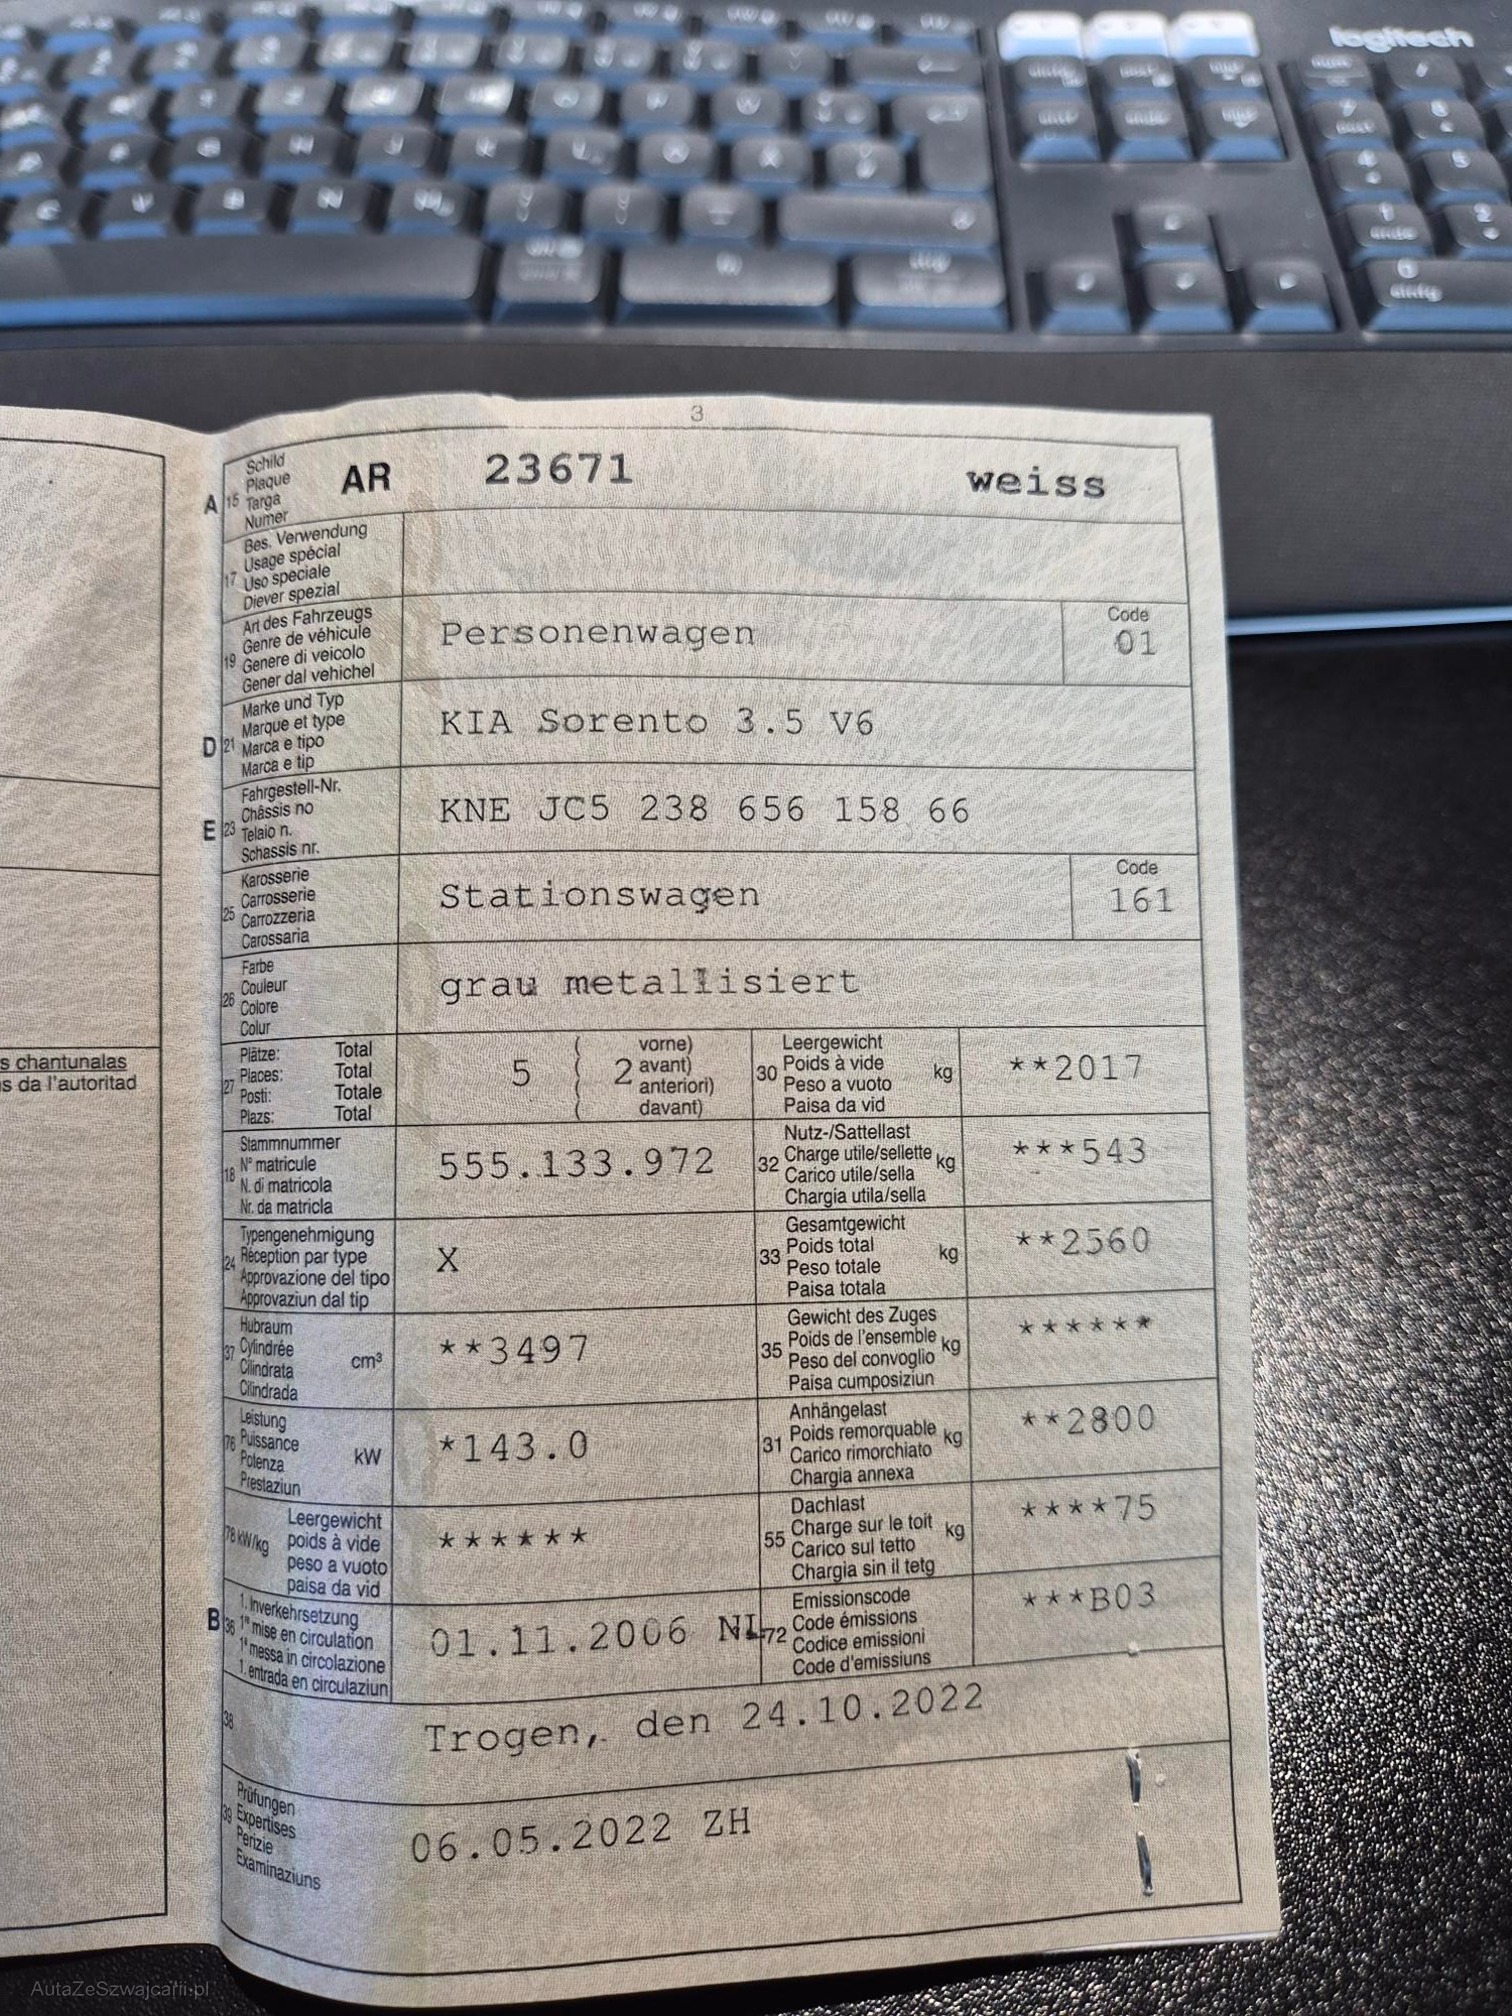 logitech
3
A 15 Schild
Plaque
Targa
Numer
AR 23671 weiss
17 Bes. Verwendung
Usage spécial
Uso speciale
Diever spezial
19 Art des Fahrzeugs
Genre de véhicule
Genere di veicolo
Gener dal vehichel
Personenwagen
Code
01
D 21 Marke und Typ
Marque et type
Marca e tipo
Marca e tip
KIA Sorento 3.5 V6
E 23 Fahrgestell-Nr.
Châssis no
Telaio n.
Schassis nr.
KNE JC5 238 656 158 66
25 Karosserie
Carrosserie
Carrozzeria
Carossaria
Stationswagen
Code
161
26 Farbe
Couleur
Colore
Colur
grau metallisiert
27 Plätze: Total
Places: Total
Posti: Totale
Plazs: Total
5 ( 2 vorne)
( avant)
( anteriori)
( davant)
30 Leergewicht
Poids à vide
Peso a vuoto
Paisa da vid
kg
**2017
s chantunalas
s da l'autoritad
18 Stammnummer
N° matricule
N. di matricola
Nr. da matricla
555.133.972
32 Nutz-/Sattellast
Charge utile/sellette
Carico utile/sella
Chargia utila/sella
kg
***543
24 Typengenehmigung
Réception par type
Approvazione del tipo
Approvaziun dal tip
X
33 Gesamtgewicht
Poids total
Peso totale
Paisa totala
kg
**2560
37 Hubraum
Cylindrée
Cilindrata
Cilindrada
cm³
**3497
35 Gewicht des Zuges
Poids de l'ensemble
Peso del convoglio
Paisa cumposiziun
kg
******
76 Leistung
Puissance
Potenza
Prestaziun
kW
*143.0
31 Anhängelast
Poids remorquable
Carico rimorchiato
Chargia annexa
kg
**2800
78 kW/kg Leergewicht
poids à vide
peso a vuoto
paisa da vid
******
55 Dachlast
Charge sur le toit
Carico sul tetto
Chargia sin il tetg
kg
****75
B 36 1. Inverkehrsetzung
1re mise en circulation
1a messa in circolazione
1. entrada en circulaziun
01.11.2006 NL
72 Emissionscode
Code émissions
Codice emissioni
Code d'emissiuns
***B03
38
Trogen, den 24.10.2022
39 Prüfungen
Expertises
Perizie
Examinaziuns
06.05.2022 ZH
AutaZeSzwajcarii.pl